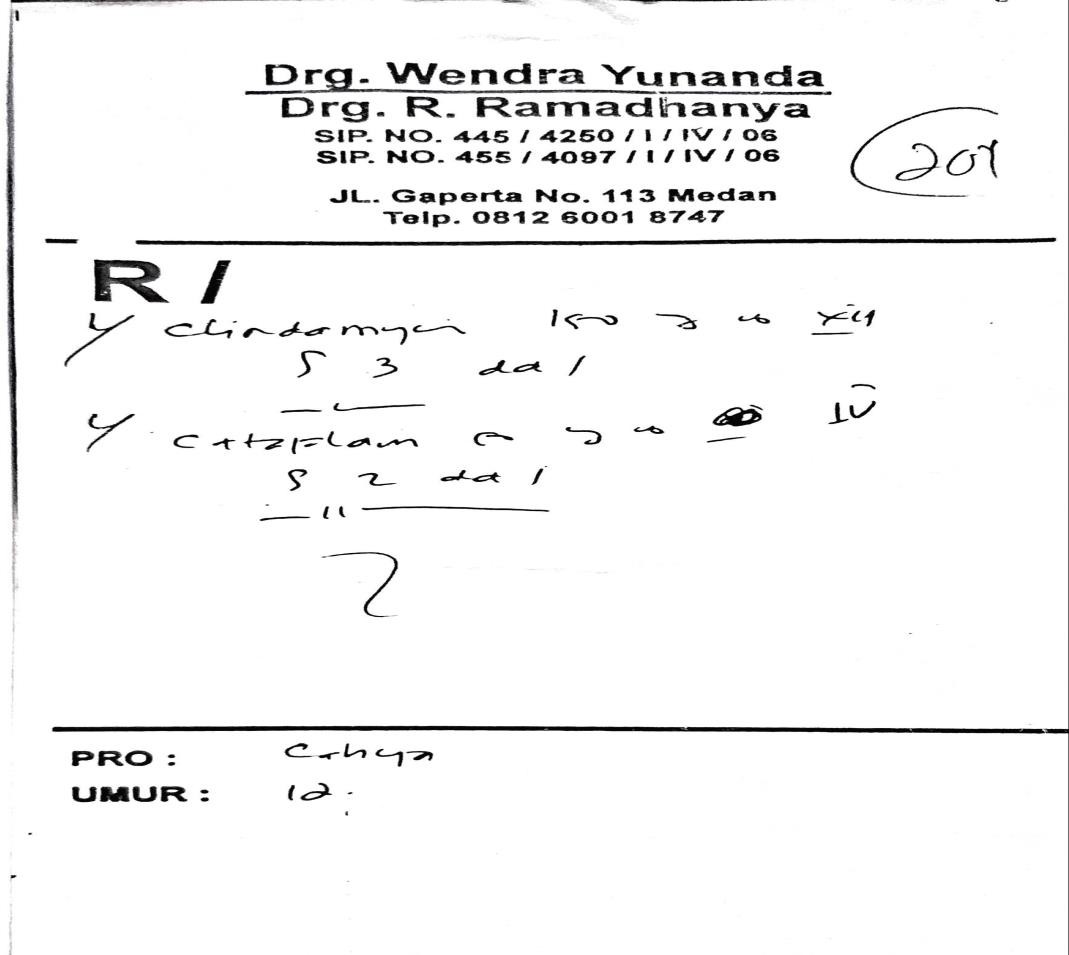 Drg. Wendra Yunanda
Drg. R. Ramadhanya
SIP. NO. 445 / 4250 / I / IV / 06
SIP. NO. 455 / 4097 / I / IV / 06
JL. Gaperta No. 113 Medan
Telp. 0812 6001 8747
R /
Clindamycin 150
S 3 dd 1
IV
S 2 dd 1
PRO : Cahya
UMUR :